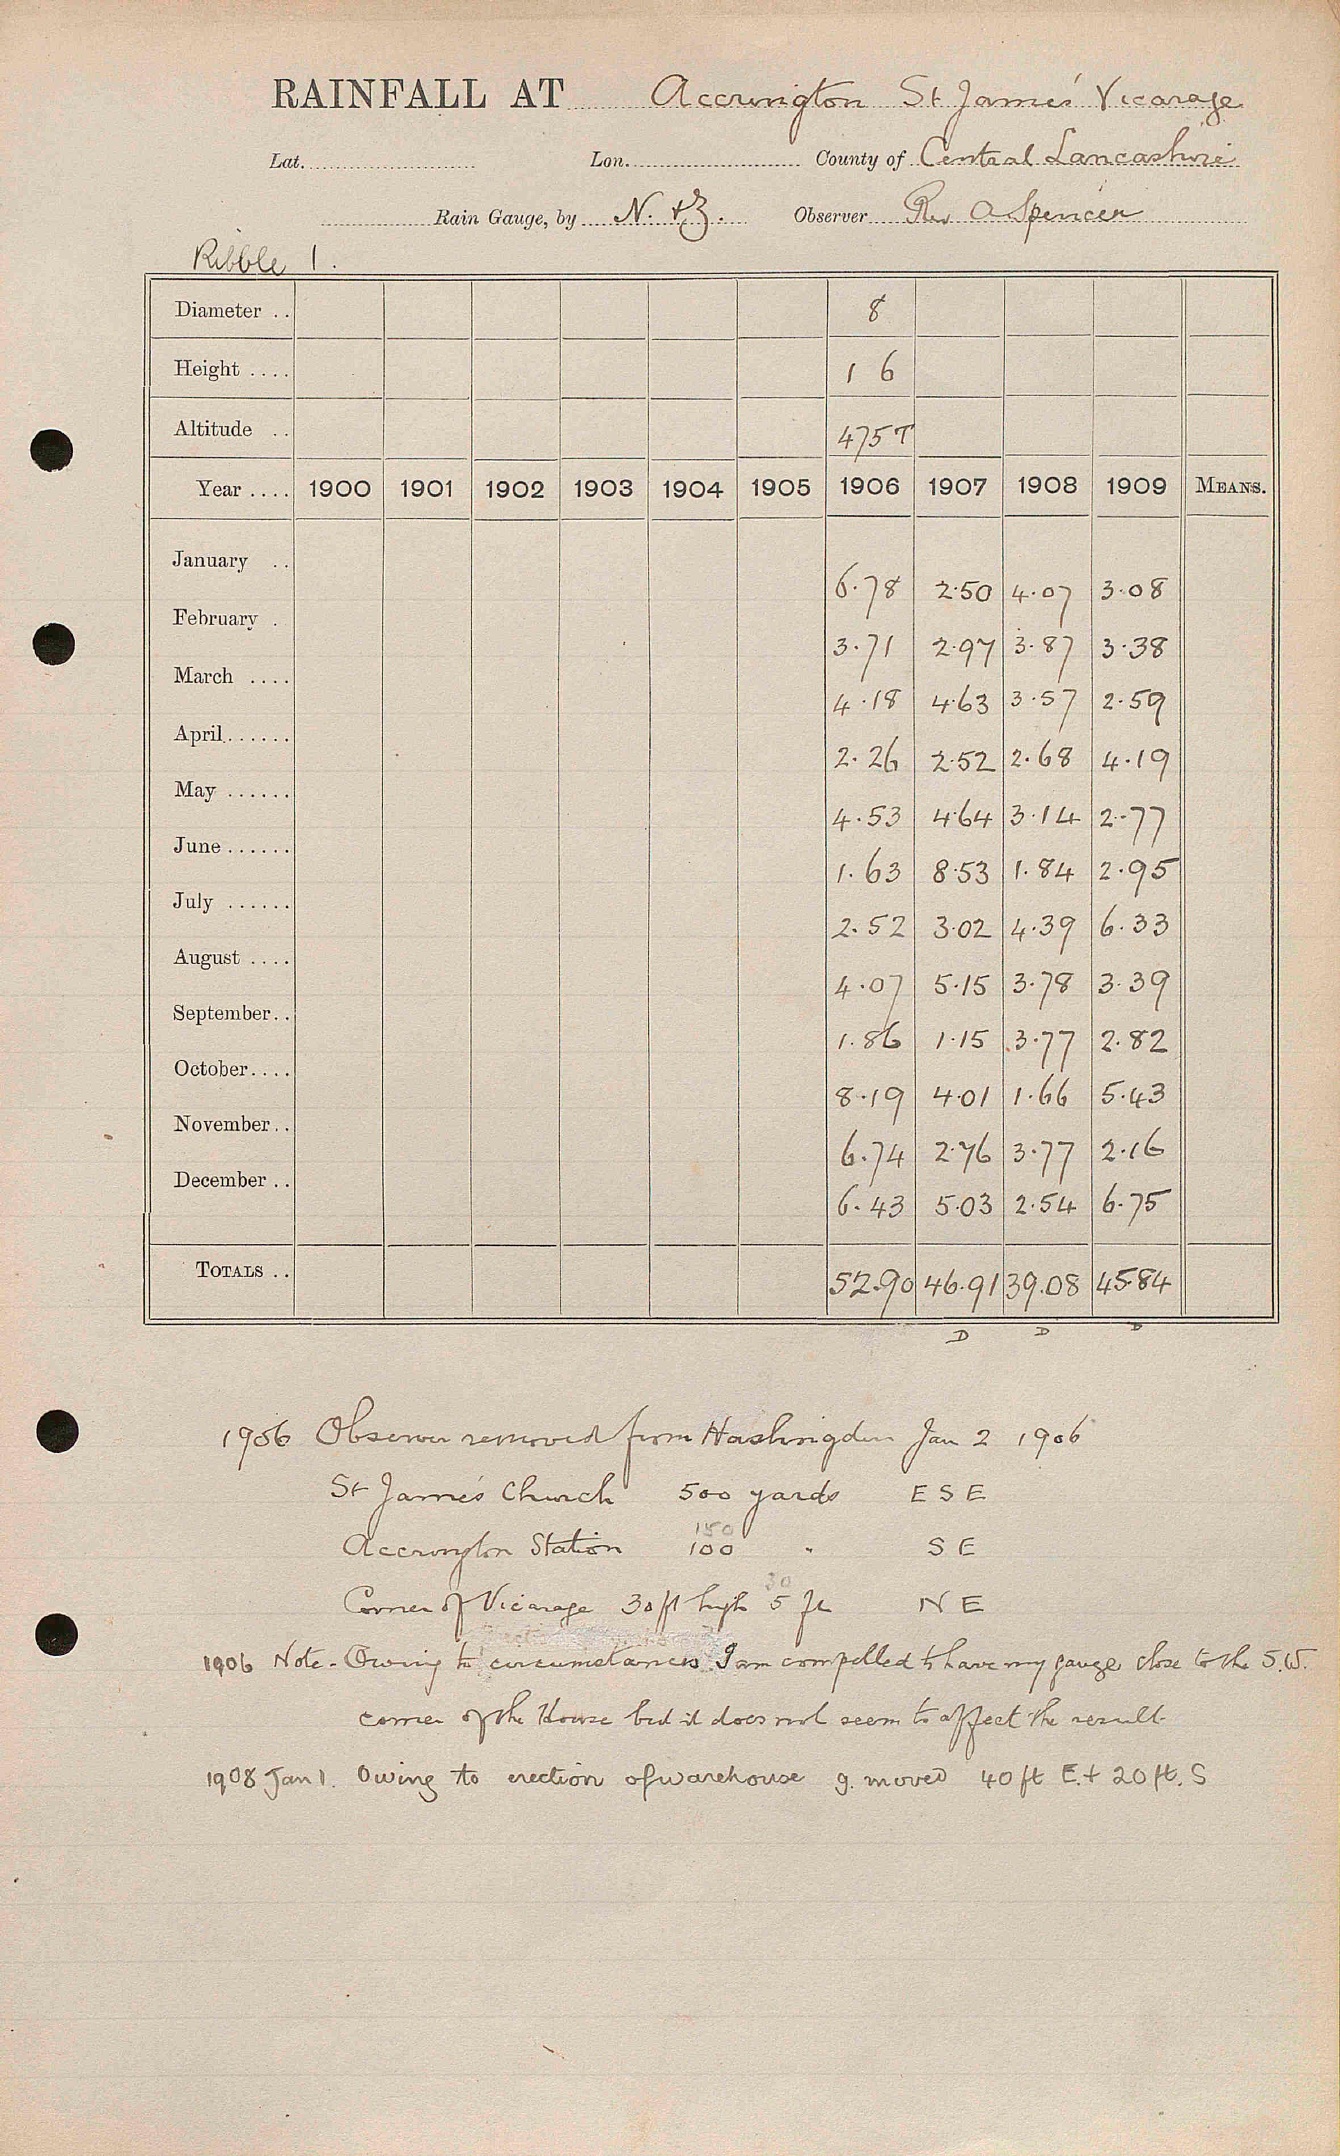 RAINFALL AT Accrington St James' Vicarage
Lat. Lon. County of Central Lancashire
Rain Gauge, by N. & Z. Observer Rev A Spencer
Ribble 1.
Diameter .. 8
Height .... 1 6
Altitude .. 475 T
Year .... 1900 1901 1902 1903 1904 1905 1906 1907 1908 1909 MEANS.
January .. 6.78 2.50 4.07 3.08
February . 3.71 2.97 3.87 3.38
March .... 4.18 4.63 3.57 2.59
April...... 2.26 2.52 2.68 4.19
May ...... 4.53 4.64 3.14 2.77
June ...... 1.63 8.53 1.84 2.95
July ...... 2.52 3.02 4.39 6.33
August .... 4.07 5.15 3.78 3.39
September.. 1.86 1.15 3.77 2.82
October.... 8.19 4.01 1.66 5.43
November.. 6.74 2.76 3.77 2.16
December .. 6.43 5.03 2.54 6.75
TOTALS .. 52.90 46.91 39.08 45.84
D D D
1906 Observer removed from Haslingden Jan 2 1906
St James's Church 500 yards E S E
150
Accrington Station 100 " S E
30
Corner of Vicarage 30 ft high 5 ft N E
1906 Note - Owing to circumstances I am compelled to have my gauge close to the S.W.
corner of the House but it does not seem to affect the result
1908 Jan 1. Owing to erection of warehouse g. moved 40 ft E. + 20 ft. S